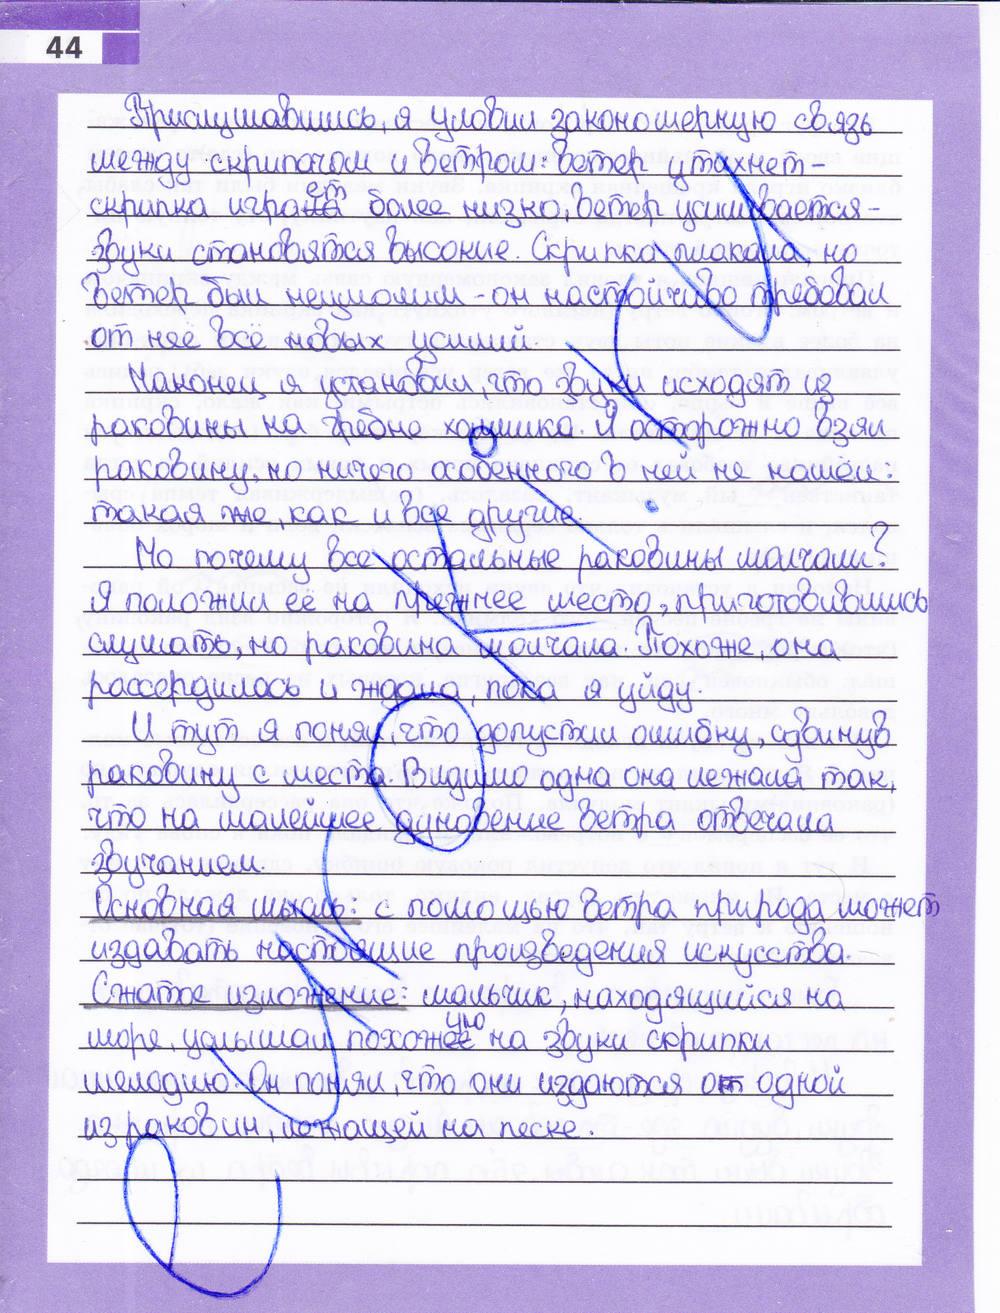 44
Прислушавшись, я уловил закономерную связь
между скрипачом и ветром: ветер утихнет -
скрипка играет более низко, ветер усиливается -
звуки становятся высокие. Скрипка плакала, но
ветер был неумолим - он настойчиво требовал
от неё всё новых усилий.
Наконец, я установил, что звуки исходят из
раковины на гребне холмика. Я осторожно взял
раковину, но ничего особенного в ней не нашёл:
такая же, как и все другие.
Но почему все остальные раковины молчали?
Я положил её на прежнее место, приготовившись
слушать, но раковина молчала. Похоже, она
рассердилась и ждала, пока я уйду
И тут я понял, что допустил ошибку, сдвинув
раковину с места. Видимо одна она лежала так,
что на малейшее дуновение ветра отвечала
звучанием.
Основная мысль: с помощью ветра природа может
издавать настоящие произведения искусства.
Сжатое изложение: мальчик, находящийся на
море, услышал похожую на звуки скрипки
мелодию. Он понял, что они издаются от одной
из раковин, лежащей на песке.